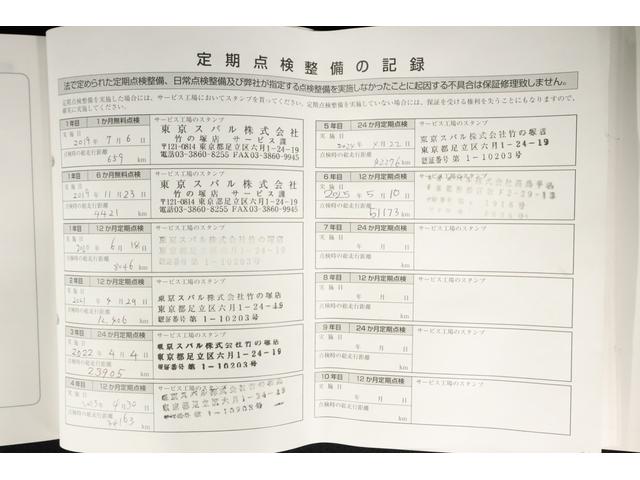 定期点検整備の記録
法で定められた定期点検整備、日常点検整備及び弊社が指定する点検整備を実施しなかったことに起因する不具合は保証修理致しません。
定期点検整備を実施した場合には、サービス工場においてスタンプを貰ってください。定期点検整備を実施していない場合には、保証を受ける権利を失うこともなりますので、
確実に実施してください。
1年目 1か月無料点検 サービス工場のスタンプ
実施日
2019年 7月 6日
点検時の総走行距離
659 km
東京スバル株式会社
竹の塚店 サービス課
〒121-0814 東京都足立区六月1-24-19
電話03-3860-8255 FAX03-3860-9945
1年目 6か月無料点検 サービス工場のスタンプ
実施日
2019年 11月 23日
点検時の総走行距離
4421 km
東京スバル株式会社
竹の塚店 サービス課
〒121-0814 東京都足立区六月1-24-19
電話03-3860-8255 FAX03-3860-9945
1年目 12か月定期点検 サービス工場のスタンプ
実施日
2020年 6月 18日
点検時の総走行距離
8046 km
東京スバル株式会社竹の塚店
東京都足立区六月1-24-19
認証番号 第 1-10203号
2年目 12か月定期点検 サービス工場のスタンプ
実施日
2021年 4月 29日
点検時の総走行距離
km
東京スバル株式会社竹の塚店
東京都足立区六月1-24-19
認証番号 第 1-10203号
3年目 24か月定期点検 サービス工場のスタンプ
実施日
2022年 4月 4日
点検時の総走行距離
23905 km
東京スバル株式会社竹の塚店
東京都足立区六月1-24-19
認証番号 第 1-10203号
4年目 12か月定期点検 サービス工場のスタンプ
実施日
2023年 4月 30日
点検時の総走行距離
km
東京スバル株式会社竹の塚店
東京都足立区六月1-24-19
第 1-10203号
5年目 24か月定期点検 サービス工場のスタンプ
実施日
2024年 月 22日
点検時の総走行距離
km
東京スバル株式会社竹の塚店
東京都足立区六月1-24-19
認証番号 第 1-10203号
6年目 12か月定期点検 サービス工場のスタンプ
実施日
2025年 5月 10日
点検時の総走行距離
51173 km
7年目 12か月定期点検 サービス工場のスタンプ
実施日
年 月 日
点検時の総走行距離
km
8年目 12か月定期点検 サービス工場のスタンプ
実施日
年 月 日
点検時の総走行距離
km
9年目 12か月定期点検 サービス工場のスタンプ
実施日
年 月 日
点検時の総走行距離
km
10年目 12か月定期点検 サービス工場のスタンプ
実施日
年 月 日
点検時の総走行距離
km